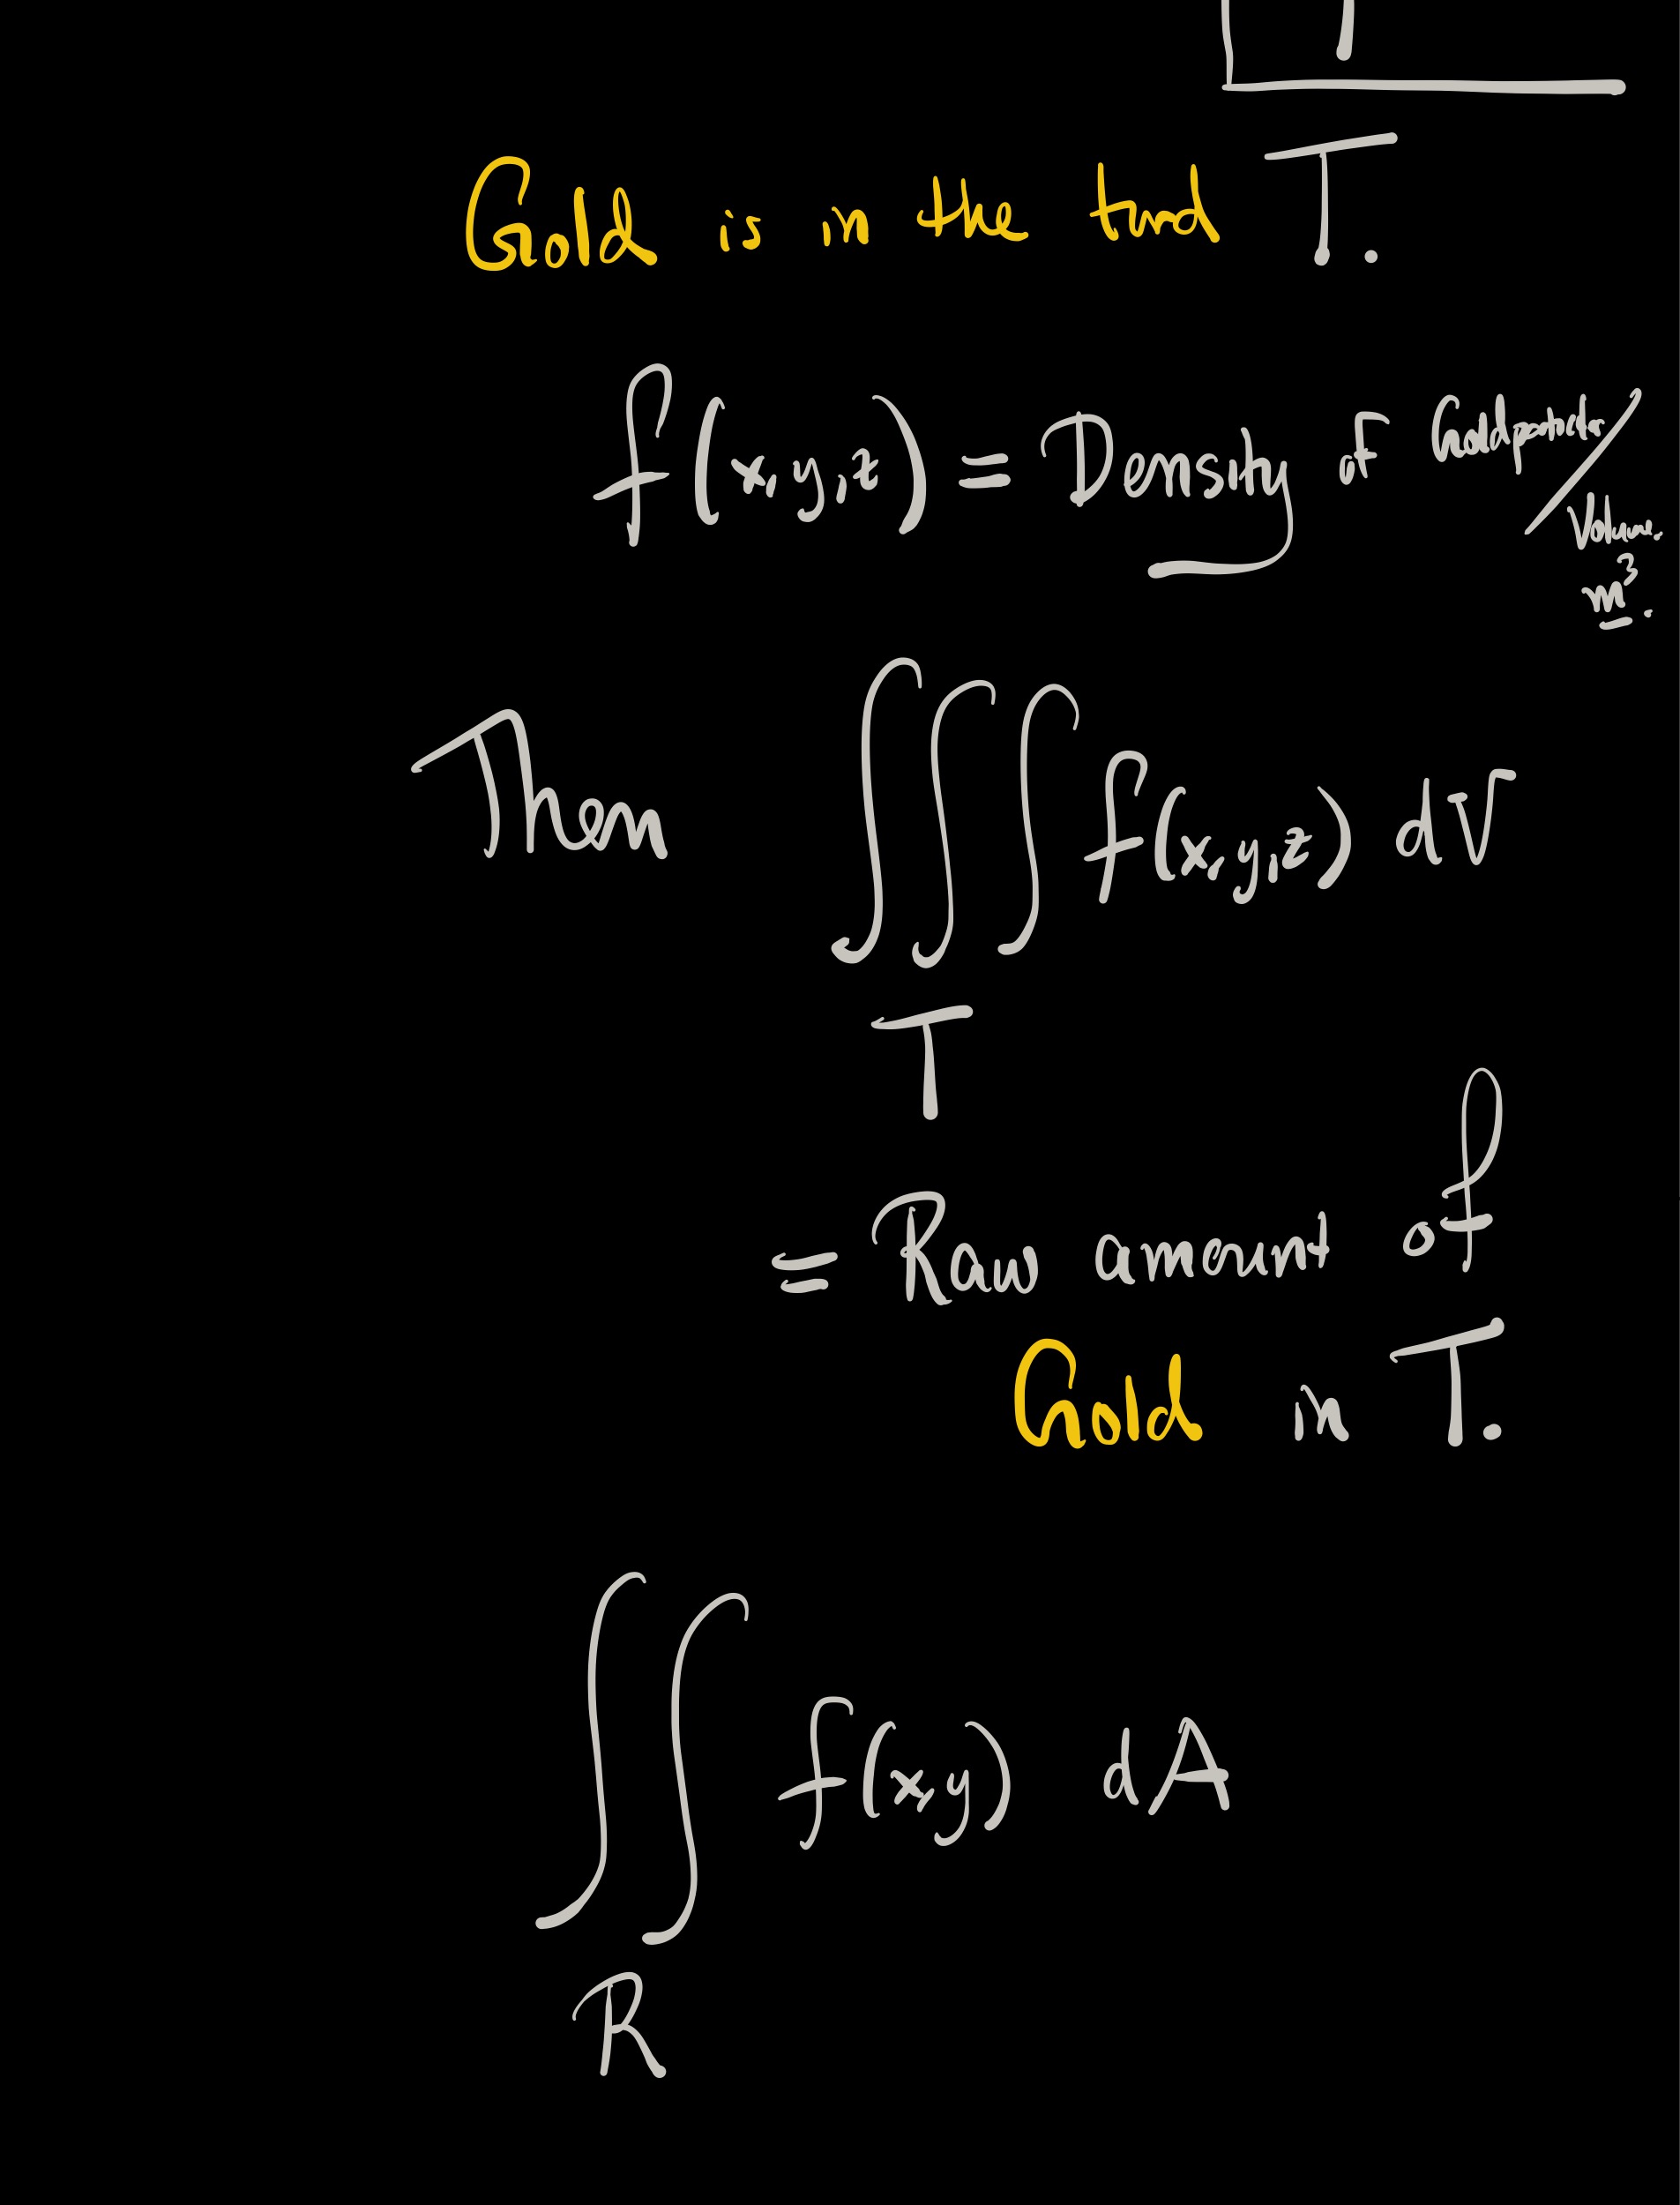 Gold is in the tnd T.
f(x,y,z) = Density of Gold particles / Volume.
m³.
Then ∫∫∫ f(x,y,z) dV
T
= Raw amount of
Gold in T.
∫∫ f(x,y) dA
R